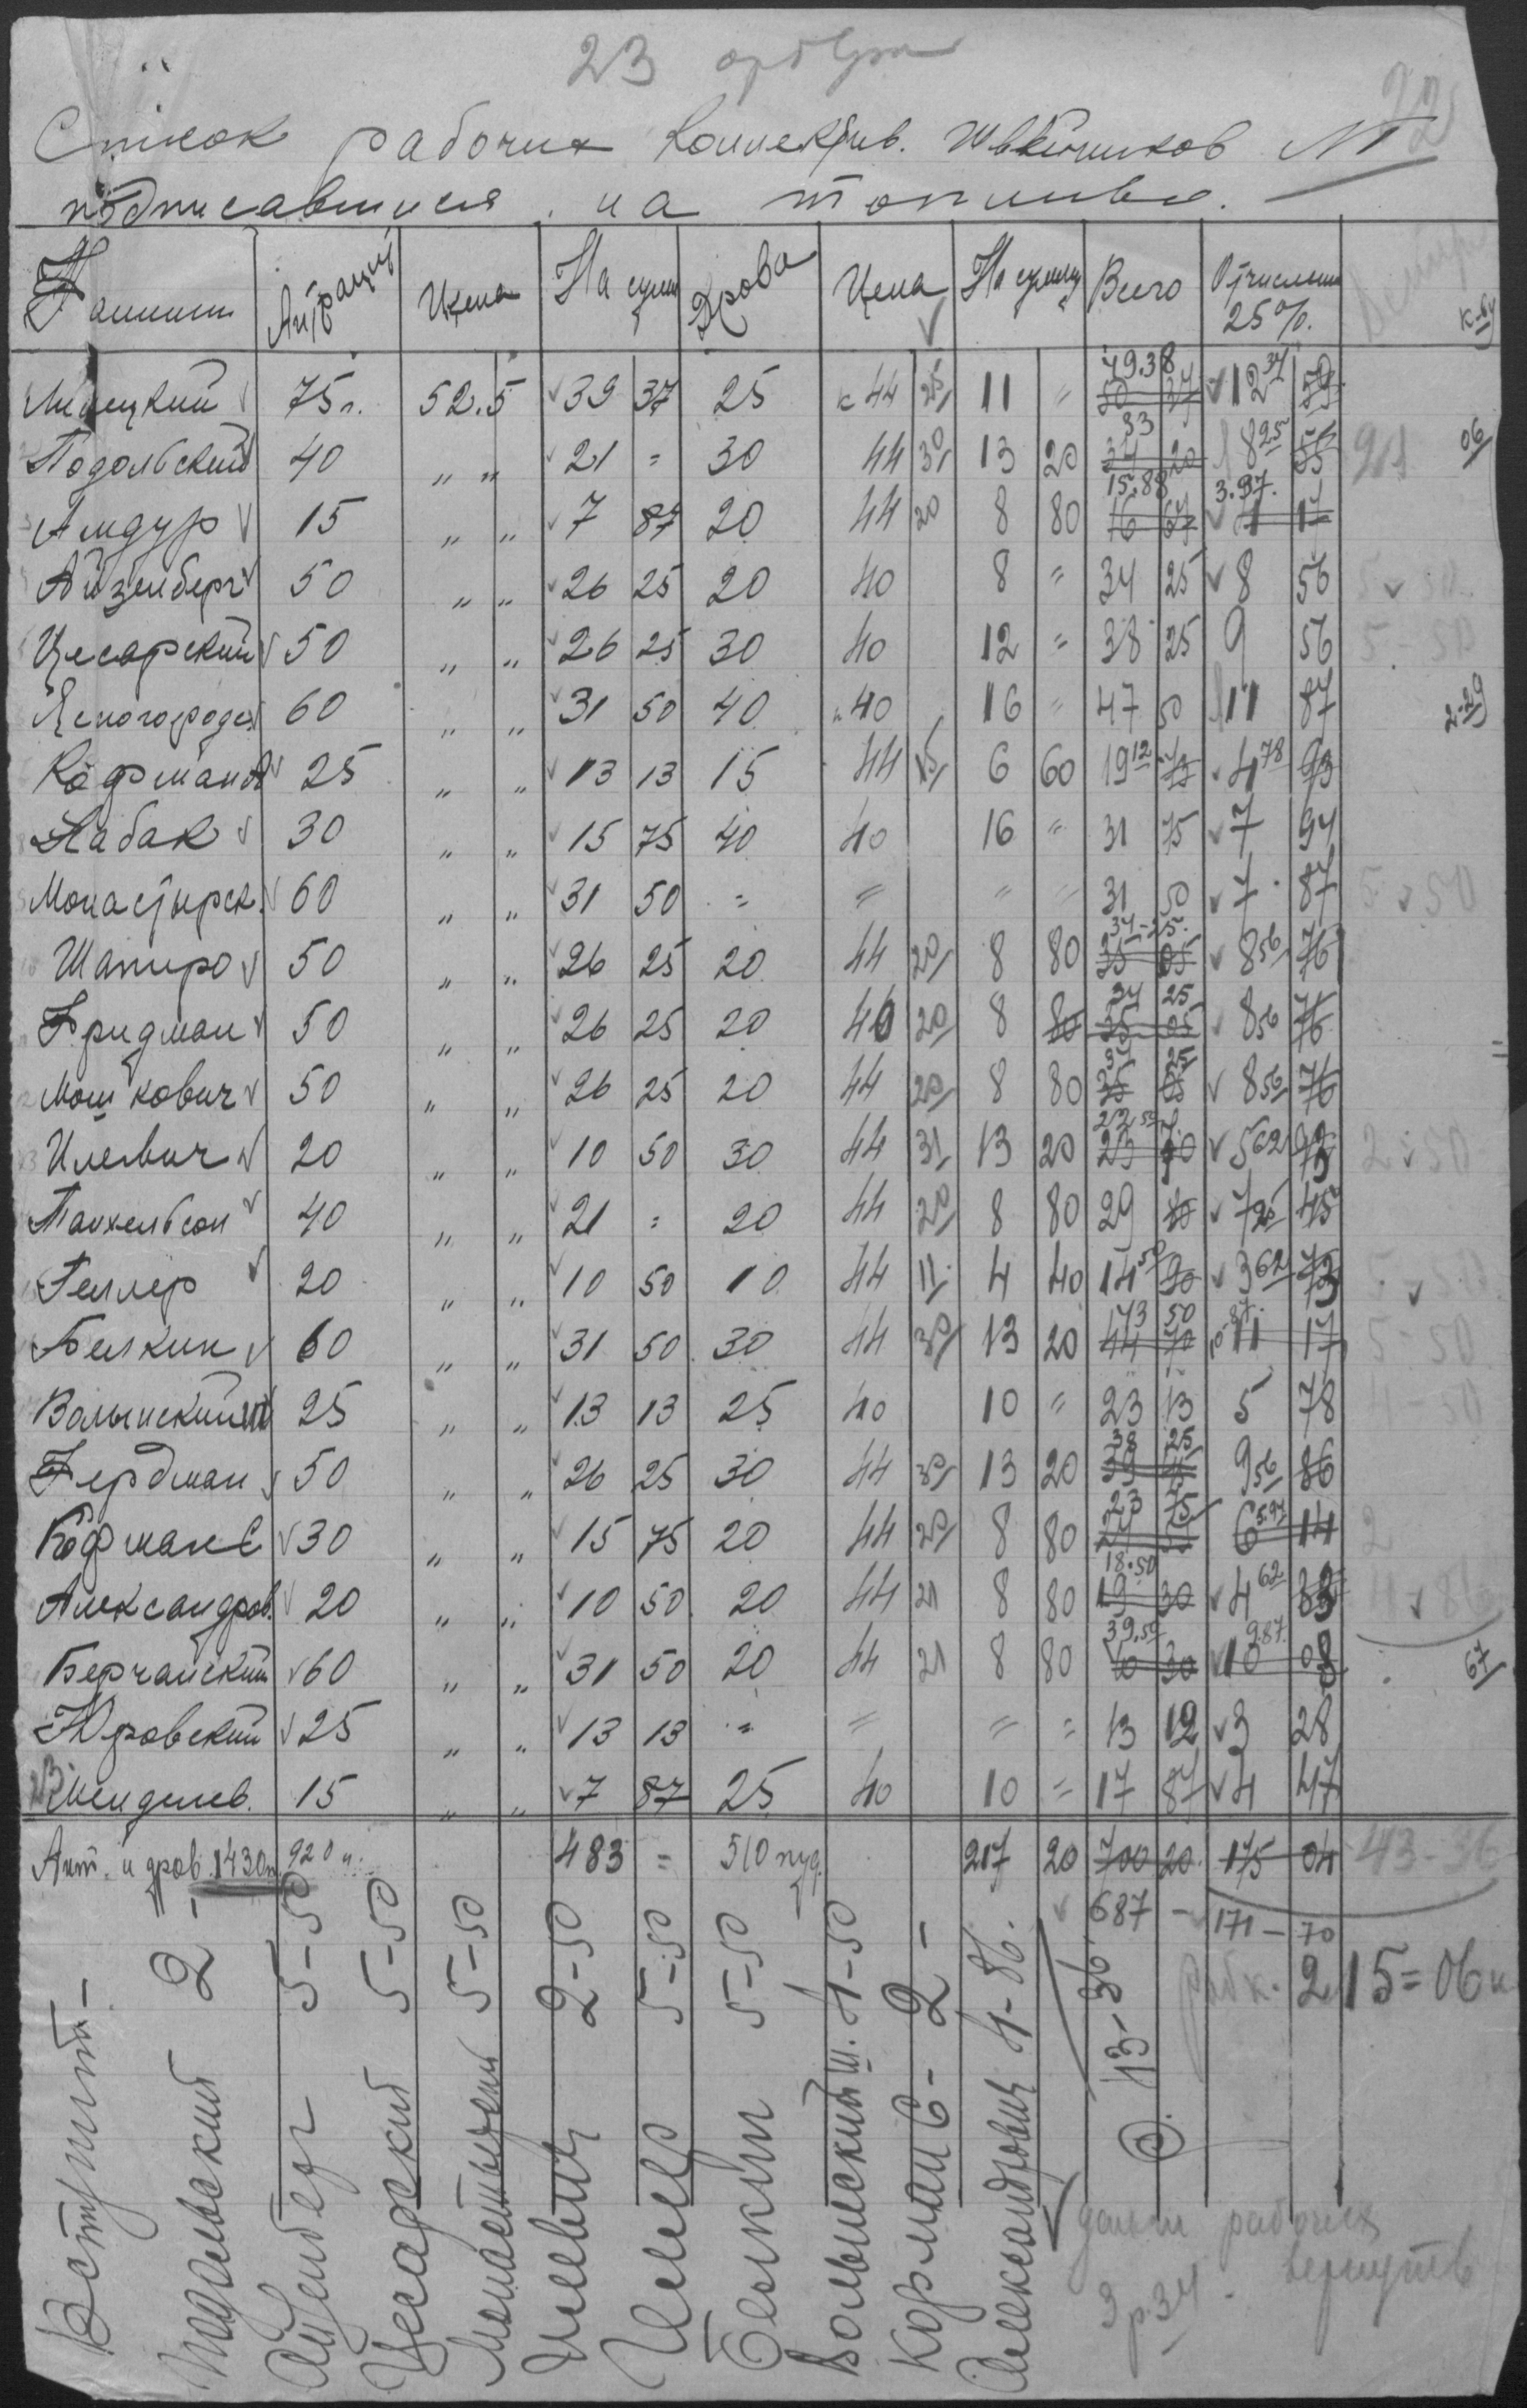 23
22
Список рабочих Коллектив. Швейников №1
подписавшихся на топливо.
Фамилии Антрацит Цена На сумм Дрова Цена На сумму Всего Отчислен 25%. к-ву
Липецкий 75п. 52.5 39 37 25 44 25 11 " 49.38 50 37 12 34 59
Подольский 40 " " 21 = 30 44 30 13 20 33 34 20 8 25 55 06
Амдур 15 " " 7 87 20 44 20 8 80 15.88 16 67 3.97 4 17
Айзенберг 50 " " 26 25 20 40 8 = 34 25 8 56 5 50
Цесарский 50 " " 26 25 30 40 12 = 38 25 9 56 5-50
Ясногородск 60 " " 31 50 40 40 16 " 47 50 11 87 2-29
Кофман А 25 " " 13 13 15 44 15 6 60 19 12 73 4 78 93
Кабак 30 " " 15 75 40 40 16 " 31 75 7 94
Монастырск. 60 " " 31 50 = = " " 31 50 7 87 5 50
Шапиро 50 " " 26 25 20 44 20 8 80 34-25 35 05 8 56 76
Фридман 50 " " 26 25 20 40 20 8 80 34 25 35 05 8 56 76
Мошкович 50 " " 26 25 20 44 20 8 80 34 25 35 05 8 56 76
Илевич 20 " " 10 50 30 44 31 13 20 22 50 23 70 5 62 93 2 50
Танхельсон 40 " " 21 = 20 44 20 8 80 29 80 7 25 45
Геллер 20 " " 10 50 10 44 11 4 40 14 50 90 3 62 73 5 50
Белкин 60 " " 31 50 30 44 30 13 20 43 50 44 70 10-87 11 17 5-50
Волынский Ш 25 " " 13 13 25 40 10 = 23 13 5 78 4-50
Фердман 50 " " 26 25 30 44 30 13 20 38 25 39 45 9 56 86
Кофман С 30 " " 15 75 20 44 20 8 80 23 75 24 55 5.94 6 14 2
Александров. 20 " " 10 50 20 44 21 8 80 18.50 19 30 4 62 83 4 86
Берчанский 60 " " 31 50 20 44 21 8 80 39.50 40 30 9.87 10 08 67
Юровский 25 " " 13 13 = = = = 13 12 3 28
Менделев. 15 " " 7 87 25 40 10 = 17 87 4 47
Ант. и дров. 1430п. 920 п. 483 = 510 пуд. 217 20 700 20 175 04 43-36
687 - 171-70
215=06 к
Вступит. -
Подольский 2 -
Айзенберг 5-50
Цесарский 5-50
Монастырский 5-50
Илевич 2-50
Геллер 5-50
Белкин 5-50
Волынский Ш. 4-50
Кофман С- 2 -
Александрович 4-86.
43-36
должн рабочих
вернуть
3р.34